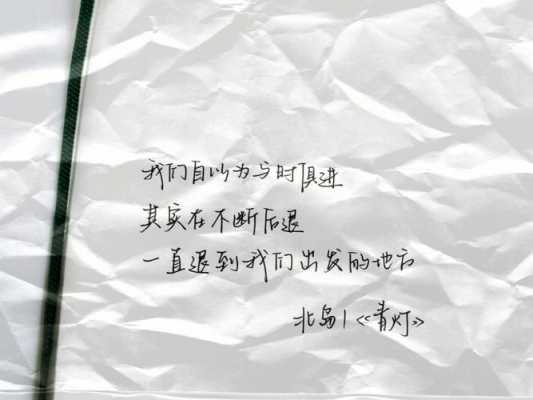 我们自以为与时俱进
其实在不断后退
一直退到我们出发的地方
北岛|《青灯》